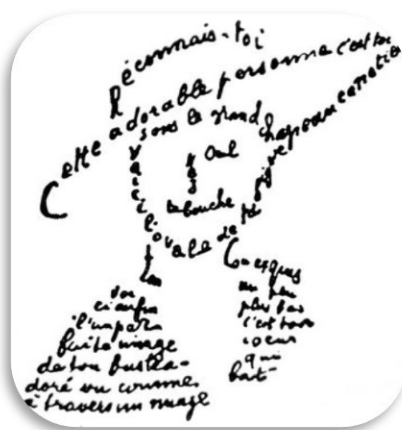 Reconnais-toi
Cette adorable personne c'est toi
sous le grand chapeau canotier
Oeil
Nez
La bouche
Voici l'ovale de ta figure
Ton
Cou exquis
Voi
ci enfin
l'imparfa
ite image
de ton buste a-
doré vu comme
à travers un nuage
un peu
plus bas
c'est ton
coeur
qui
bat